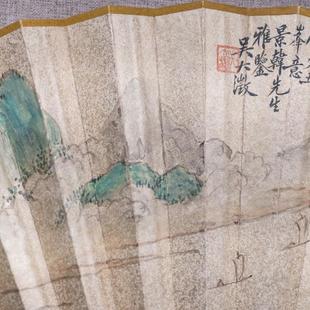 峯意
景韓先生
雅鑒
吳大澂